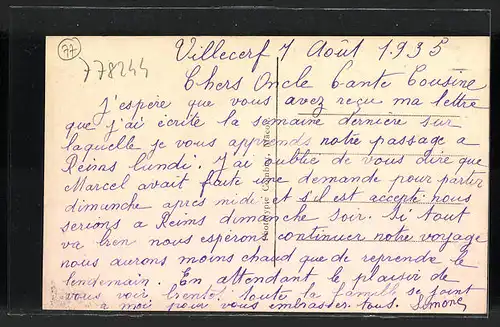 77
778244
Villecerf 7 Août 1935
Chers Oncle Tante Cousine
J'espère que vous avez reçu ma lettre
que j'ai écrite la semaine derniere sur
laquelle je vous apprends notre passage a
Reims lundi. J'ai oublié de vous dire que
Marcel avait faite une demande pour partir
dimanche après midi et s'il est accepté nous
serions a Reims dimanche soir. Si tout
va bien nous espérons continuer notre voyage
nous aurons moins chaud que de reprendre le
lendemain. En attendant le plaisir de
vous voir toute la famille se joint
a moi pour vous embrasser tous. Simone